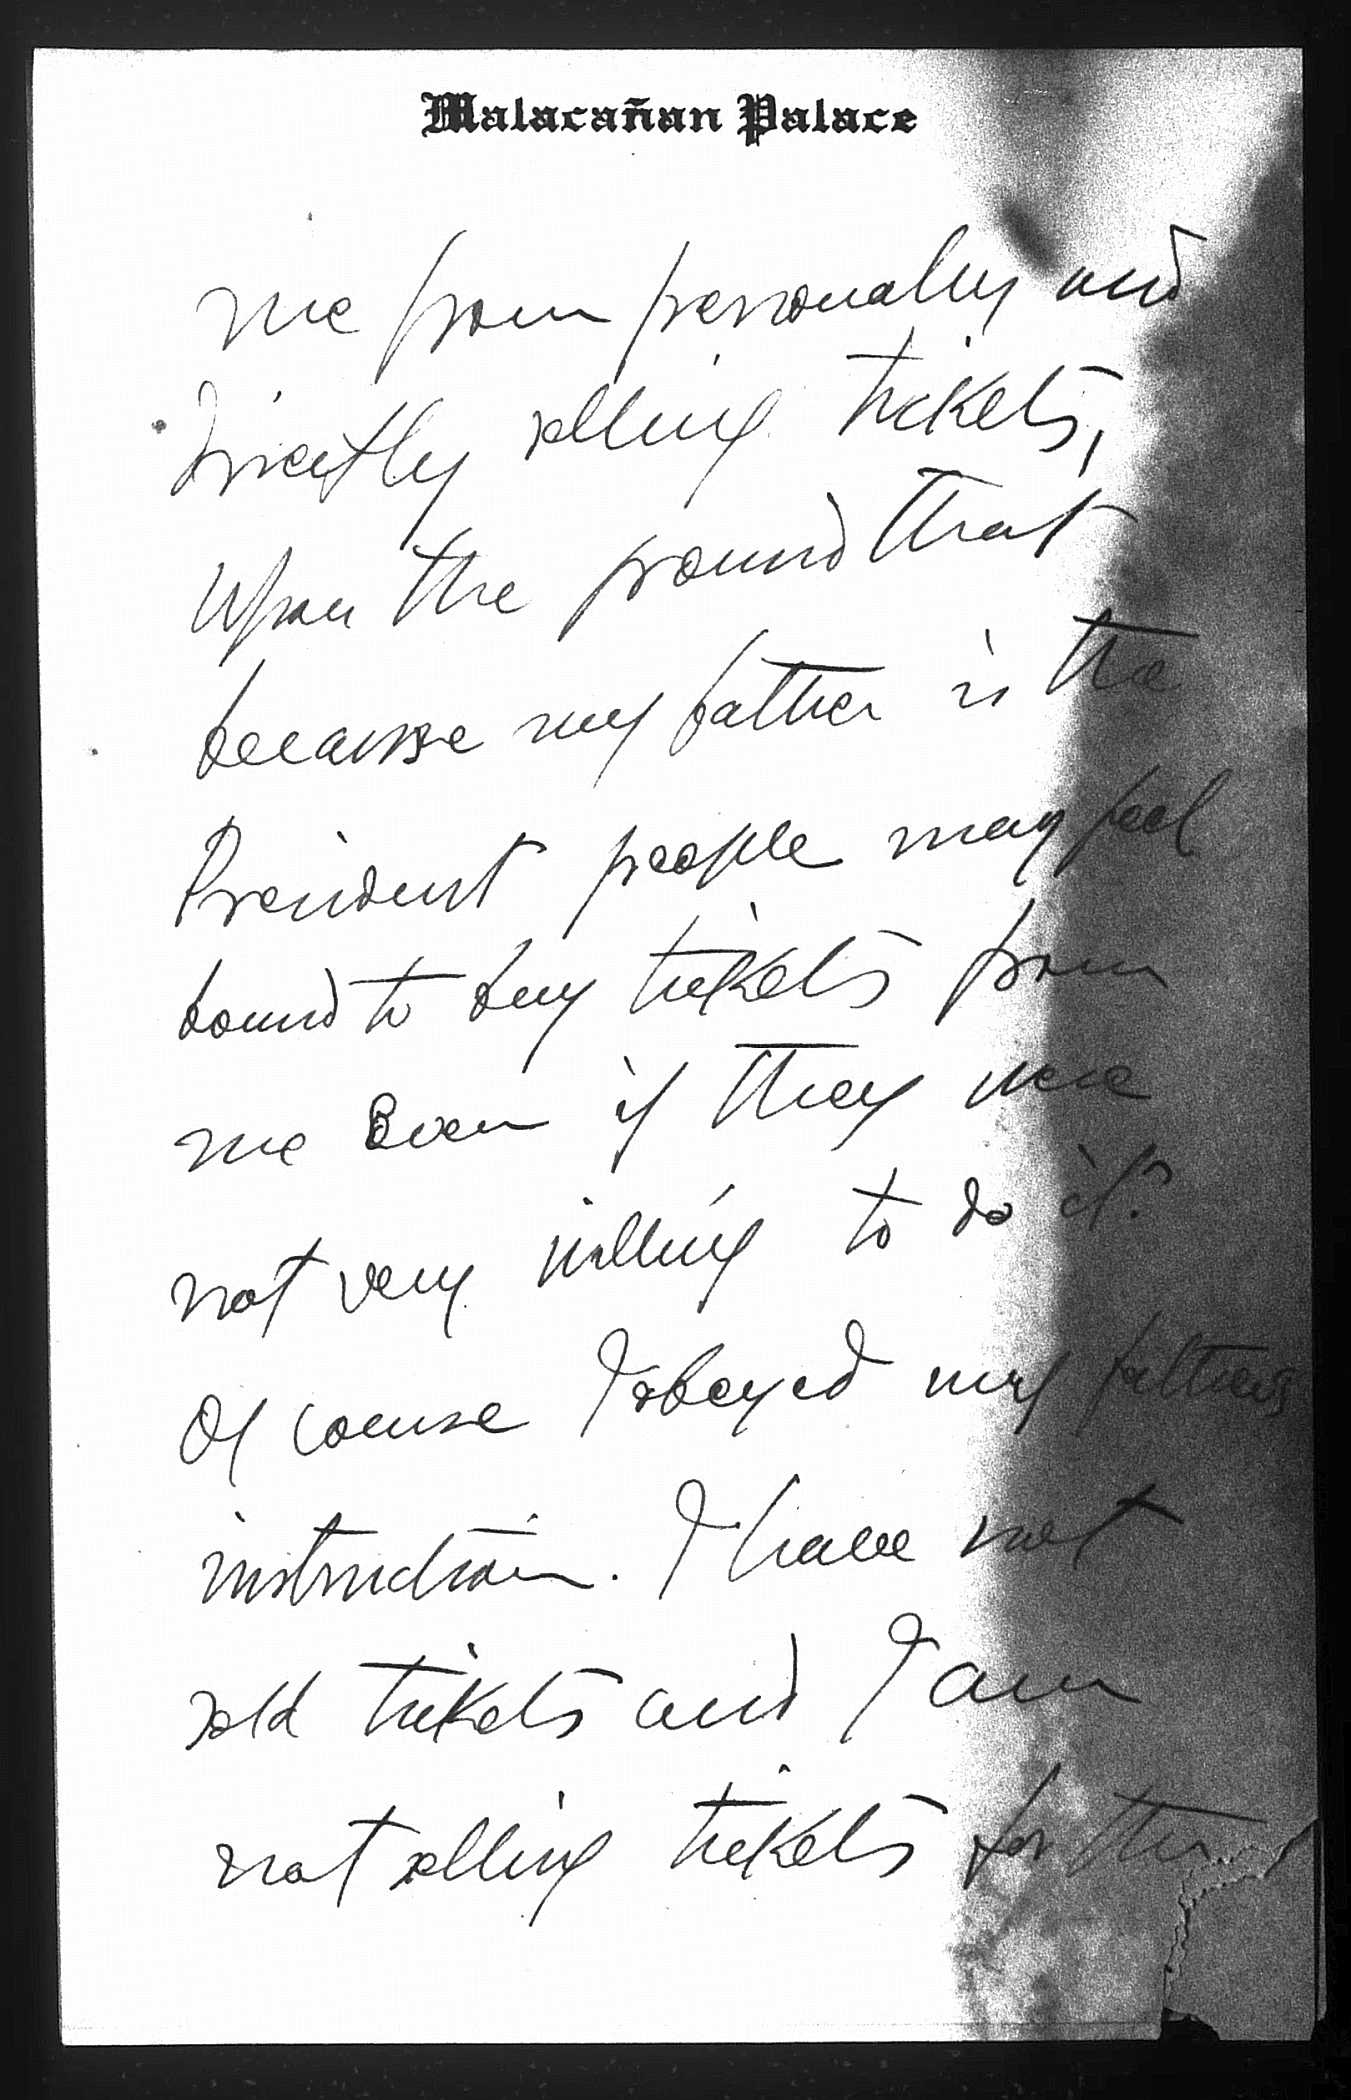 Malacañan Palace
me from personally and
directly selling tickets,
upon the ground that
because my father is the
President people may feel
bound to buy tickets from
me even if they were
not very willing to do it.
Of course I obeyed my fathers
instruction. I have not
sold tickets and I am
not selling tickets for the